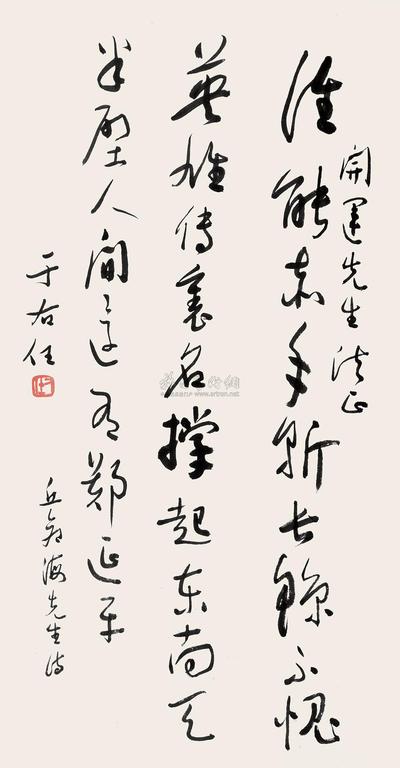 開運先生法正
誰能赤手斬長鯨不愧
英雄傳裏名撐起東南天
半壁人間還有鄭延平
丘倉海先生詩
于右任